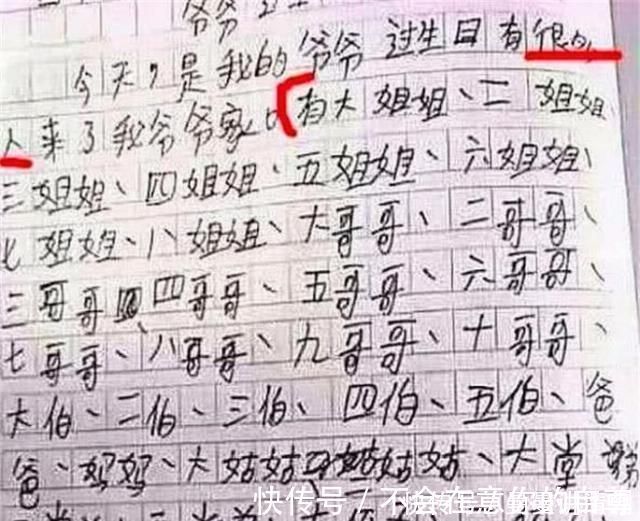 爷爷过生日
今天，是我的爷爷过生日有很多
人来了我爷爷家，有大姐姐、二姐姐
三姐姐、四姐姐、五姐姐、六姐姐、
七姐姐、八姐姐、大哥哥、二哥哥、
三哥哥、四哥哥、五哥哥、六哥哥、
七哥哥、八哥哥、九哥哥、十哥哥、
大伯、二伯、三伯、四伯、五伯、爸
爸、妈妈、大姑姑、姑姑、大堂
快传号 / 不会在意你的自尊